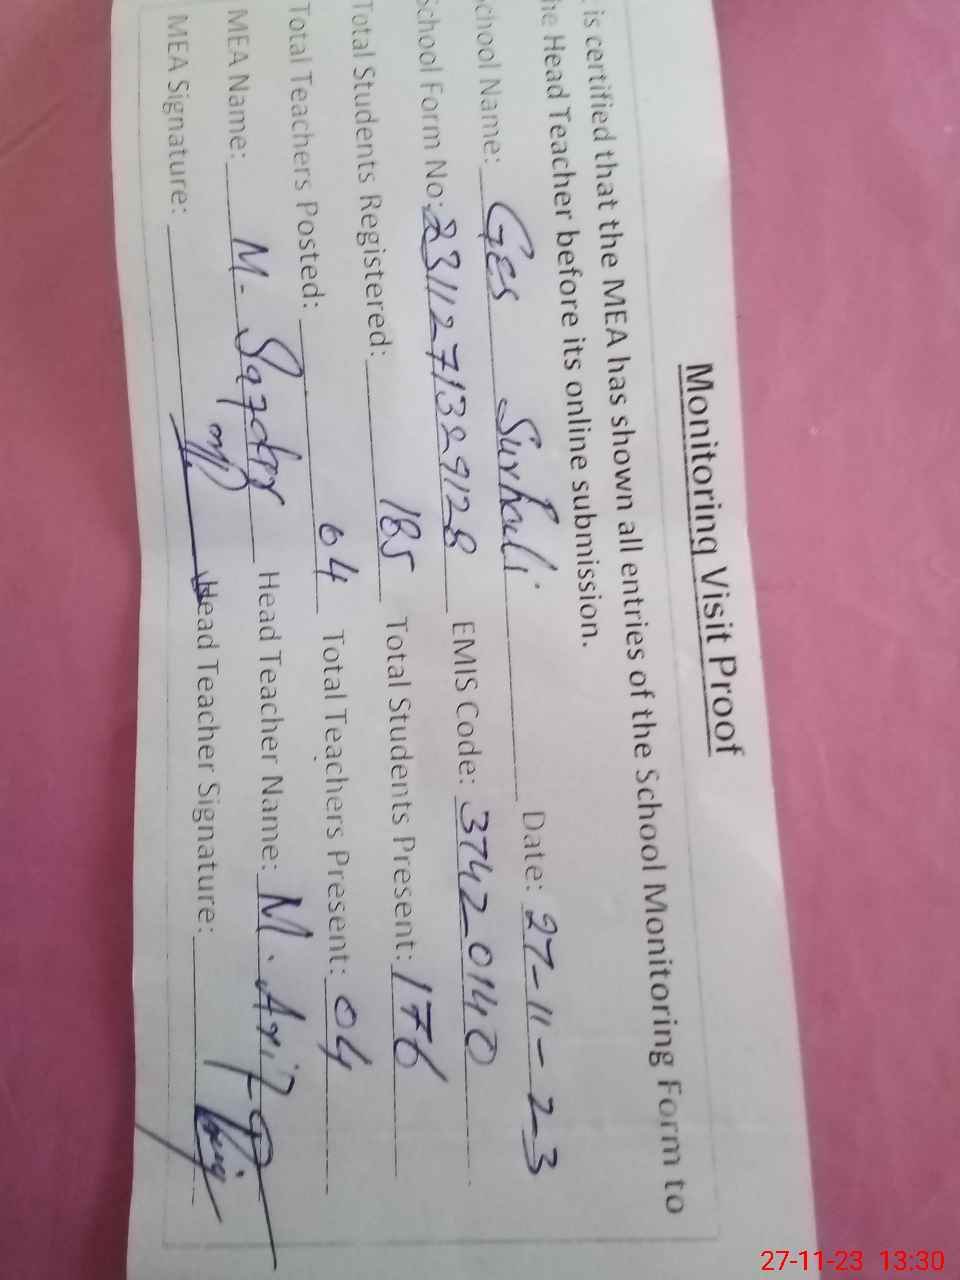 Monitoring Visit Proof
is certified that the MEA has shown all entries of the School Monitoring Form to
he Head Teacher before its online submission.
chool Name: Ges Surhali Date: 27-11-23
School Form No: 2311271329128 EMIS Code: 37420140
Total Students Registered: 185 Total Students Present: 176
Total Teachers Posted: 04 Total Teachers Present: 04
MEA Name: M. Safdar Head Teacher Name: M. Arif
MEA Signature: Head Teacher Signature:
27-11-23 13:30